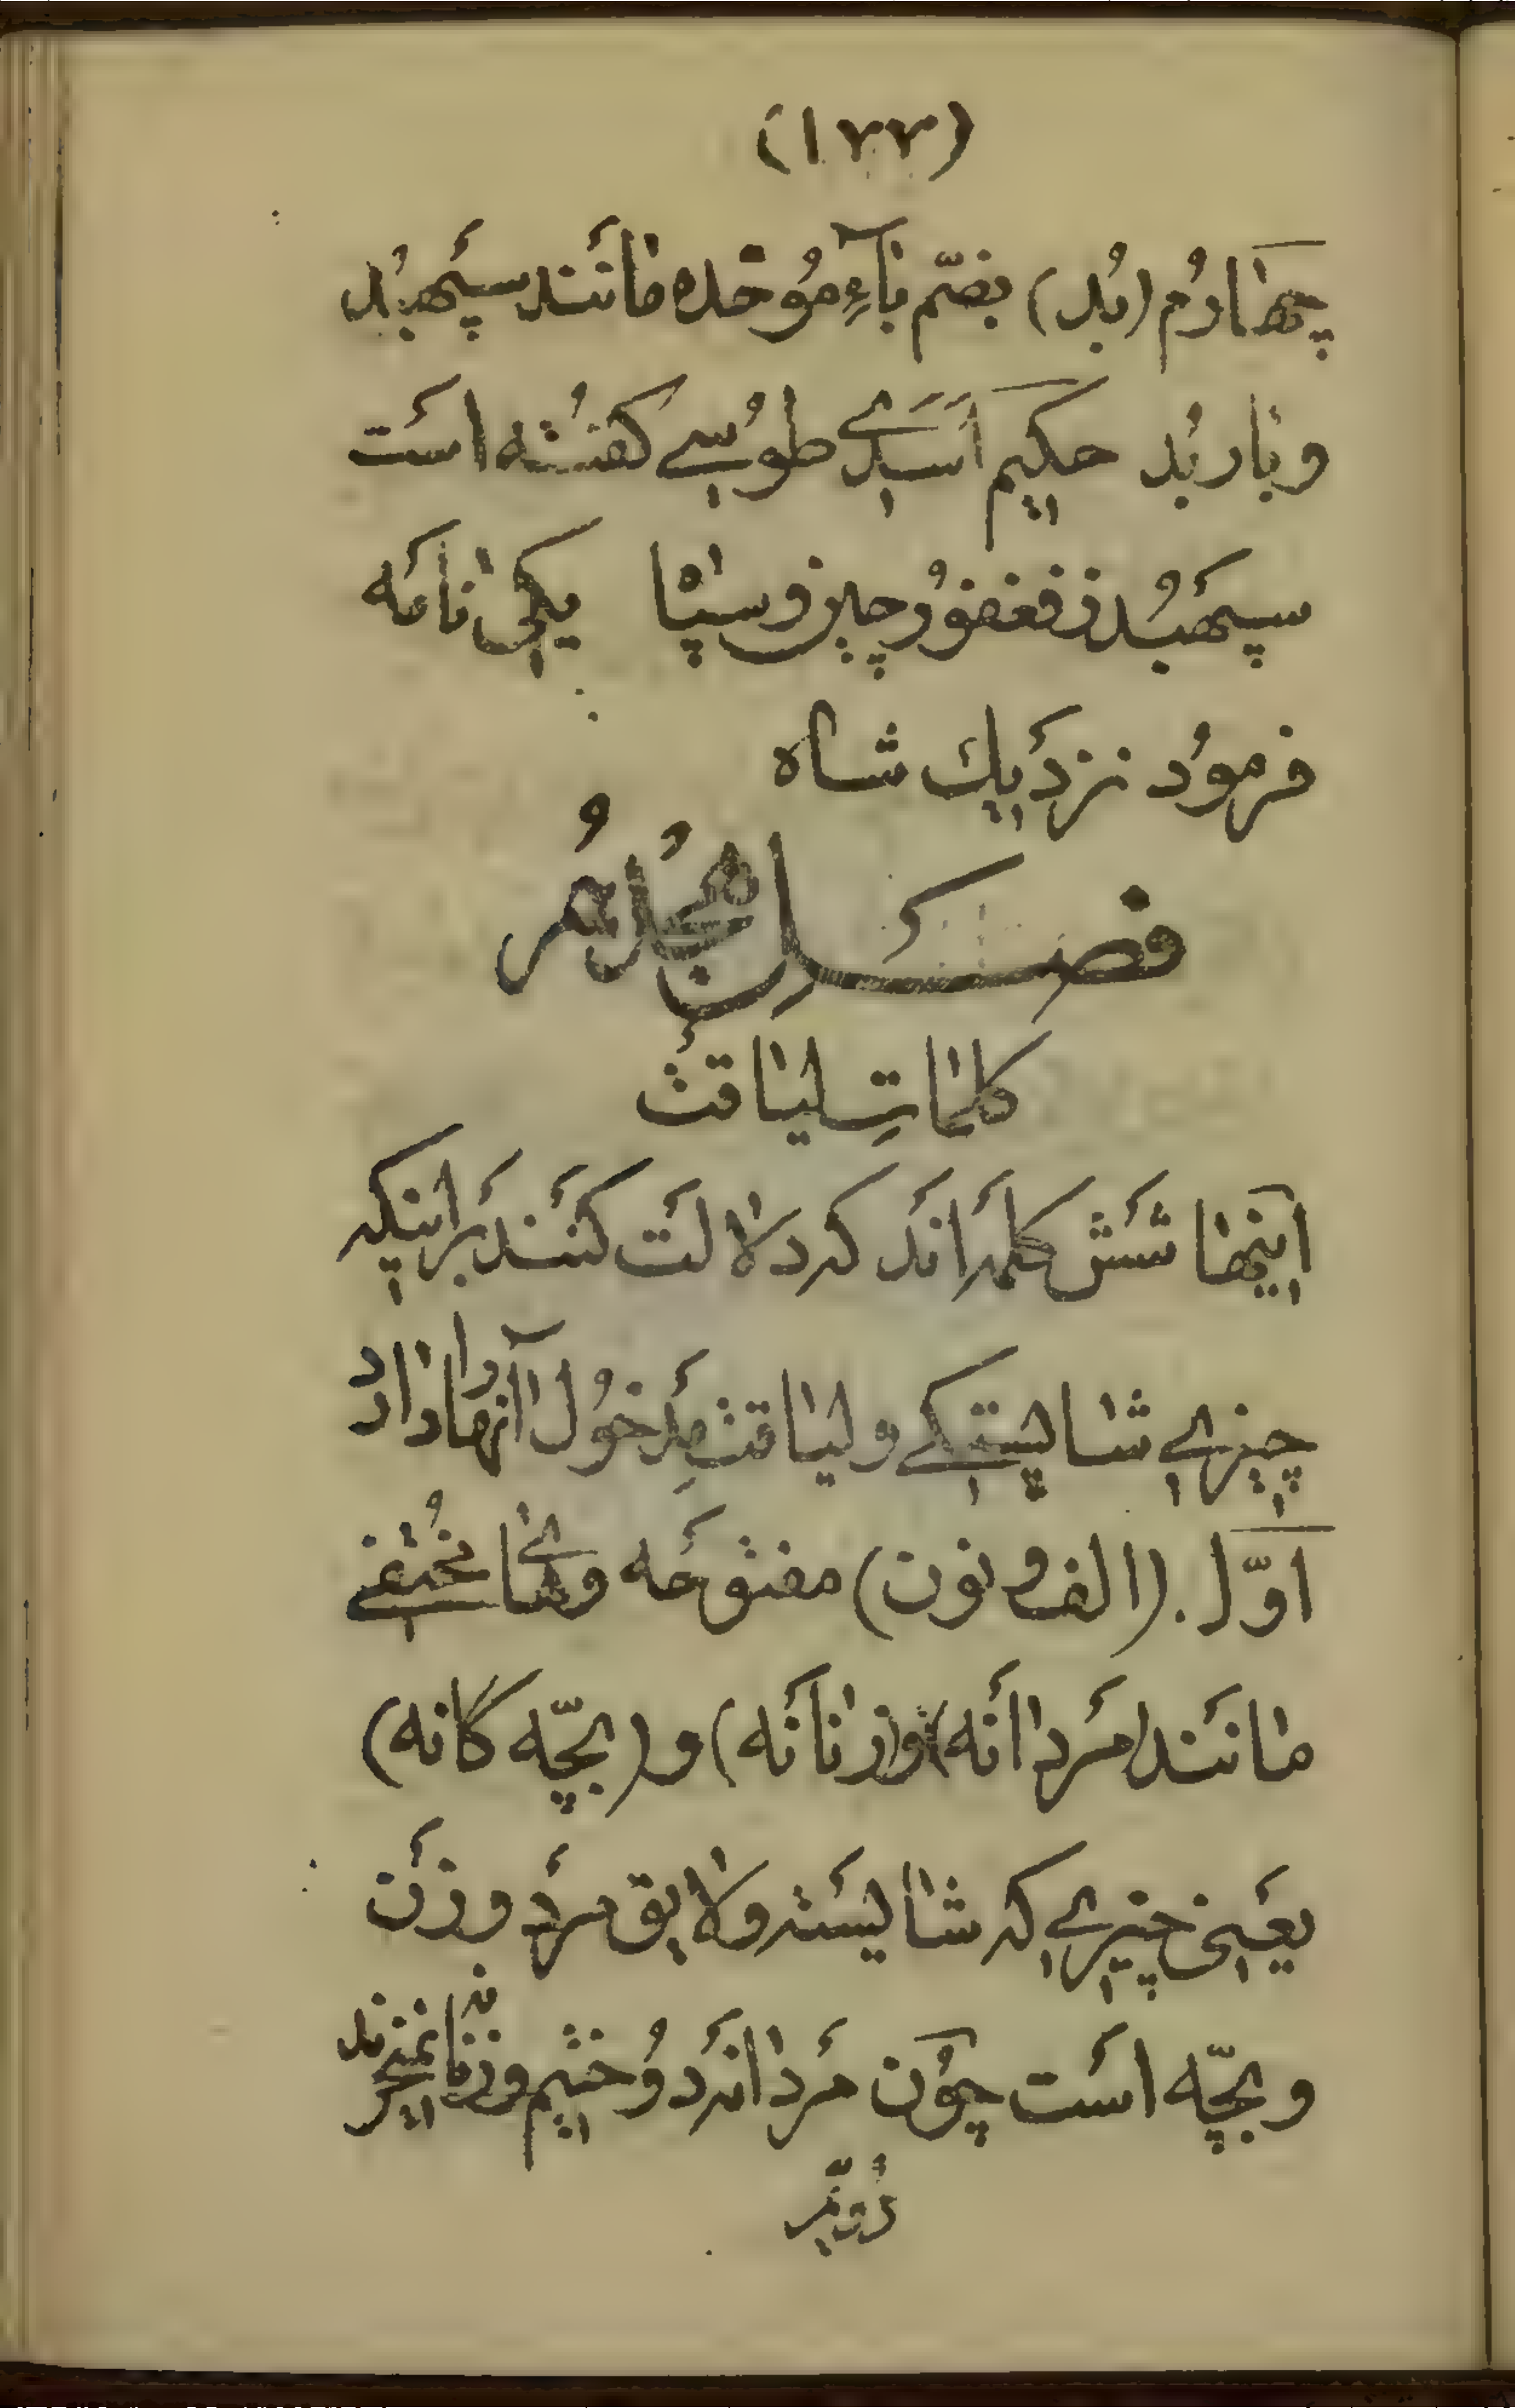 (۱۷۷)
چهارُم (بُد) بضمّ بآءِ مُوحّده مانَند سپَهبُد
و باربُد حکیم اَسَدی طوُسی گفتُه اسَت
سپَهبُد ز فغفوُر چین و سپاه یکی نامَه
فرموُد نزدَیك شاه
فصَل هجدُهُم
کلمات لیاقتَ
اینها شَش کلمَه اَند که دلالَت کنَند بَر اینکه
چیزی شایستَگی و لیاقت مِدَخوُل آنها را دارد
اوّل . (الف و نون) مفتوُحَه و هٰای مُختفی
مانَند (مَردانَه) و (زنانَه) و (بچّه گانه)
یعَنی چیزی که شایسَته و لایق مَرد و زَن
و بچّه اسَت چوُن مَردانَه دُوختیم و زنانه نمیخرند
دُوّیم